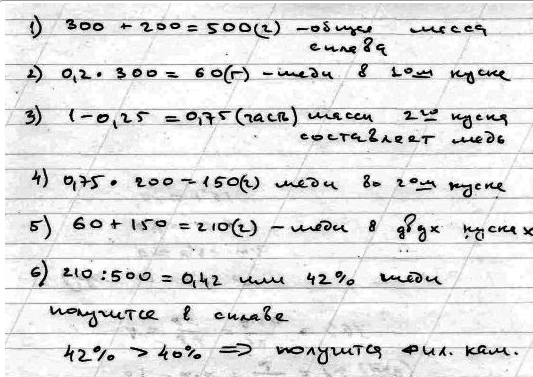 1) 300 + 200 = 500(г) – общая масса
сплава
2) 0,2 · 300 = 60(г) – меди в 1ом куске
3) 1 – 0,25 = 0,75 (часть) массы 2го куска
составляет медь
4) 0,75 · 200 = 150(г) меди во 2ом куске
5) 60 + 150 = 210(г) – меди в двух кусках
6) 210 : 500 = 0,42 или 42% меди
получится в сплаве
42% > 40% => получится фил. кам.